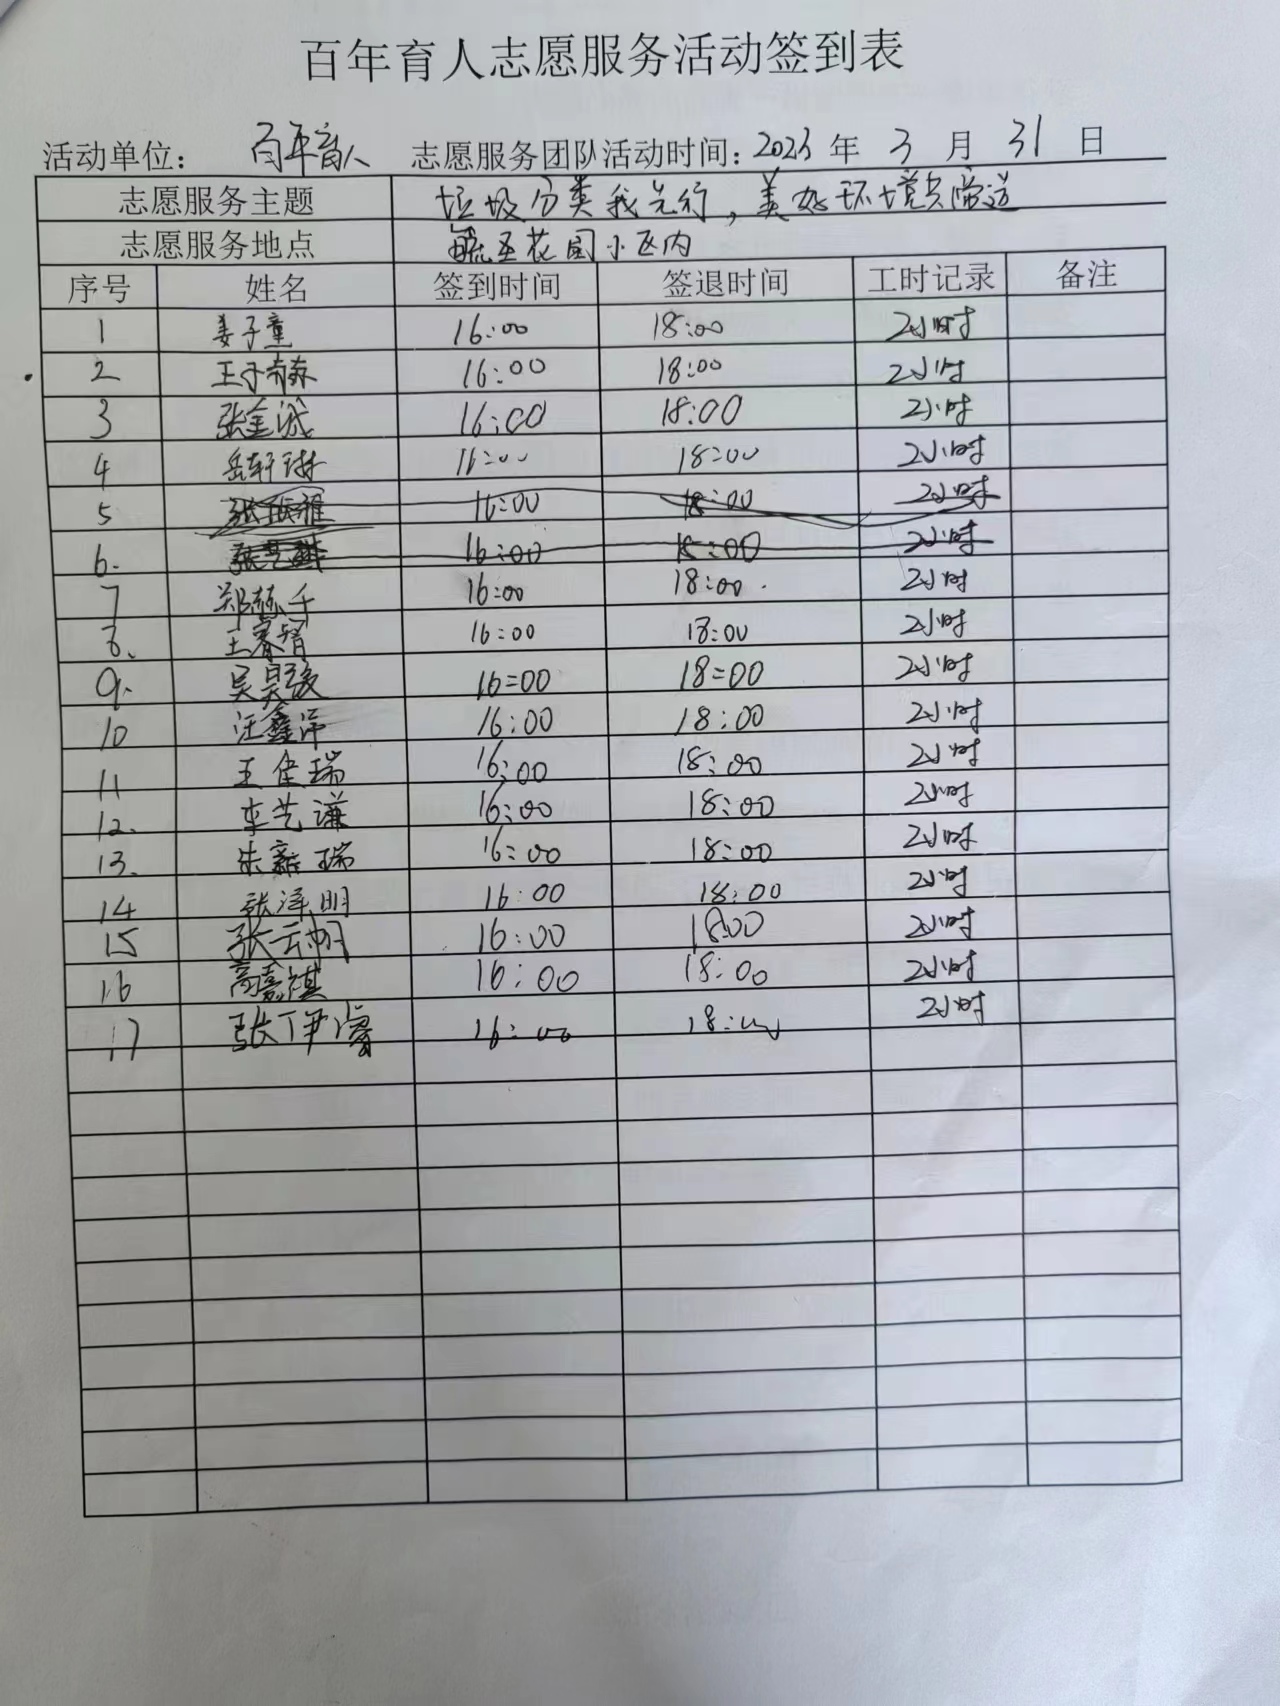 百年育人志愿服务活动签到表
活动单位: 百年育人 志愿服务团队活动时间: 2023 年 3 月 31 日
志愿服务主题 垃圾分类我先行,美好环境共缔造
志愿服务地点 花园小区内
序号 姓名 签到时间 签退时间 工时记录 备注
1 姜子童 16:00 18:00 2小时
2 王子赫 16:00 18:00 2小时
3 张金诚 16:00 18:00 2小时
4 岳轩琳 16:00 18:00 2小时
5 16:00 18:00 2小时
6. 16:00 18:00 2小时
7 郑赫千 16:00 18:00. 2小时
8. 王睿智 16:00 18:00 2小时
9. 吴昊 16=00 18=00 2小时
10 汪鑫洋 16:00 18:00 2小时
11 王佳瑞 16:00 18:00 2小时
12. 李艺谦 16:00 18:00 2小时
13. 朱新瑞 16:00 18:00 2小时
14 张泽明 16:00 18:00 2小时
15 张云帆 16:00 18:00 2小时
16 高嘉祺 16:00 18:00 2小时
17 张伊睿 16:00 18:00 2小时